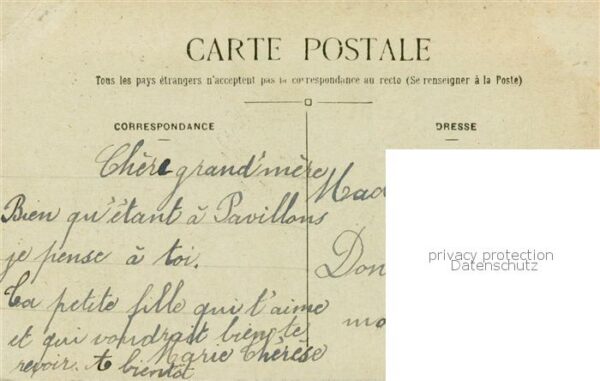 CARTE POSTALE
Tous les pays étrangers n'acceptent pas la correspondance au recto (Se renseigner à la Poste)
CORRESPONDANCE
DRESSE
Chère grand'mère
Bien qu'étant à Pavillons
je pense à toi.
Ta petite fille qui t'aime
et qui voudrait bien te
revoir. A bientôt
Marie Thérèse
Mad
Don
mo
privacy protection
Datenschutz